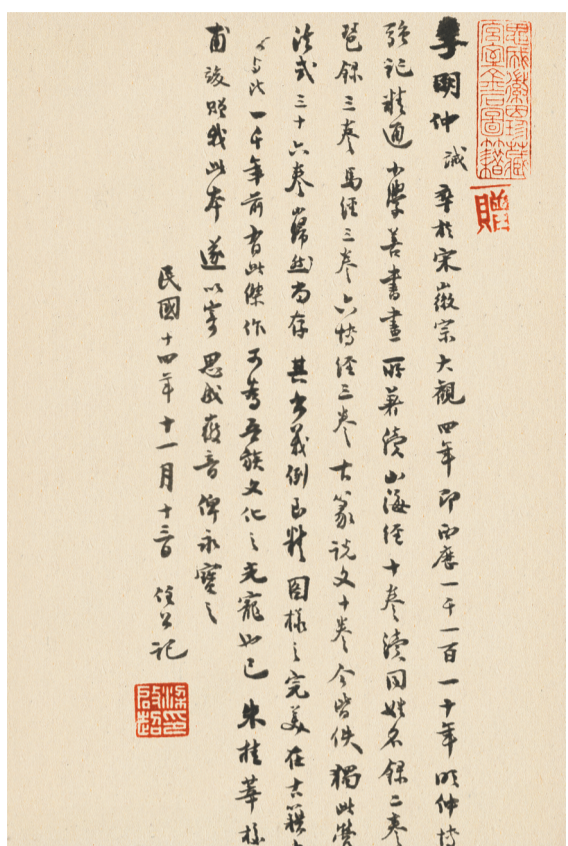 思成徽因珍藏
宮室金石圖籍
贈
李明仲誡卒於宋徽宗大觀四年即西歷一千一百一十年明仲博
強記精通小學善書畫所著續山海經十卷續同姓名錄二卷
琶錄三卷馬經三卷六博經三卷古篆說文十卷今皆佚獨此營
法式三十六卷巋然尚存其書義例至精圖樣之完美在古籍
与比一千年前有此傑作可為吾族文化之光寵也已朱桂莘校
甫竣贈我此本遂以寄思成徽音俾永寶之
民國十四年十一月十三日 任公記
梁印
啟超